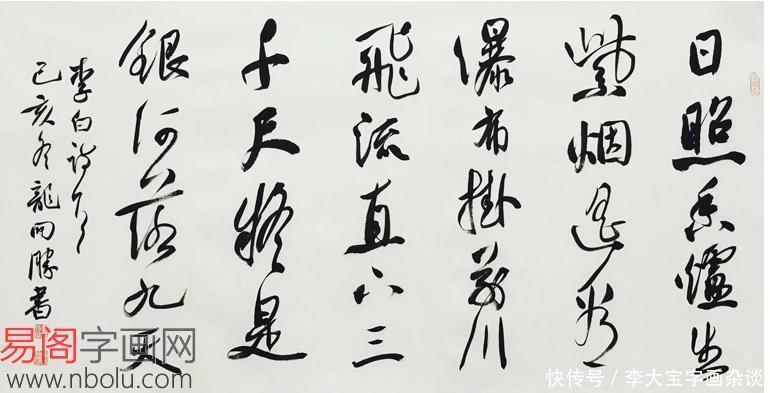 日照香爐生
紫烟遥看
瀑布掛前川
飛流直下三
千尺疑是
銀河落九天
李白詩
己亥冬龍勝書
易阁字画网
www.nbolu.com
快传号 / 李大宝字画杂谈